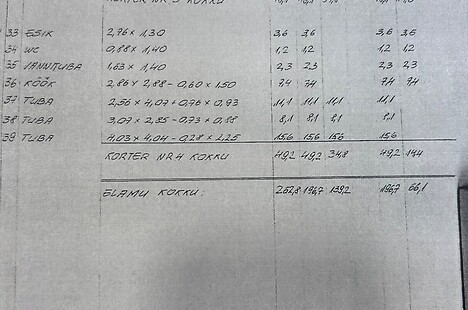 KORTER NR 3 KOKKU
33 ESIK 2,76 × 1,30 3,6 3,6 3,6 3,6
34 WC 0,88 × 1,40 1,2 1,2 1,2 1,2
35 VANNITUBA 1,63 × 1,40 2,3 2,3 2,3 2,3
36 KÖÖK 2,86 × 2,88 - 0,60 × 1,50 7,4 7,4 7,4 7,4
37 TUBA 2,56 × 4,07 + 0,76 × 0,93 11,1 11,1 11,1 11,1
38 TUBA 3,07 × 2,85 - 0,73 × 0,88 8,1 8,1 8,1
39 TUBA 4,03 × 4,04 - 0,28 × 2,25 15,6 15,6 15,6 15,6
KORTER NR 4 KOKKU 49,2 49,2 34,8 49,2 14,4
ELAMU KOKKU: 262,8 196,7 139,2 196,7 66,1